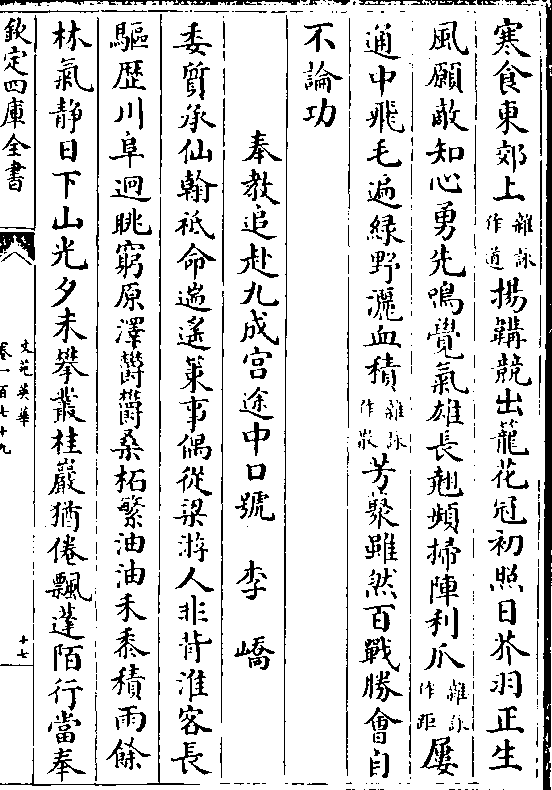 寒食東郊上雜詠作道揚鞲競出籠花冠初照日芥羽正生
風願敵知心勇先鳴覺氣雄長翹頻掃陣利爪雜詠作距屢
通中飛毛遍緑野灑血積雜詠作散芳藂雖然百戰勝會自
不論功
奉教追赴九成宫途中口號 李嶠
委質承仙翰祗命遄遥䇿事偶從梁游人非背淮客長
驅歴川阜迥眺窮原澤鬱鬱桑柘繁油油禾黍積雨餘
林氣静日下山光夕未攀叢桂巖猶倦飄蓬陌行當奉
欽定四庫全書
文苑英華
卷一百七十九
十七